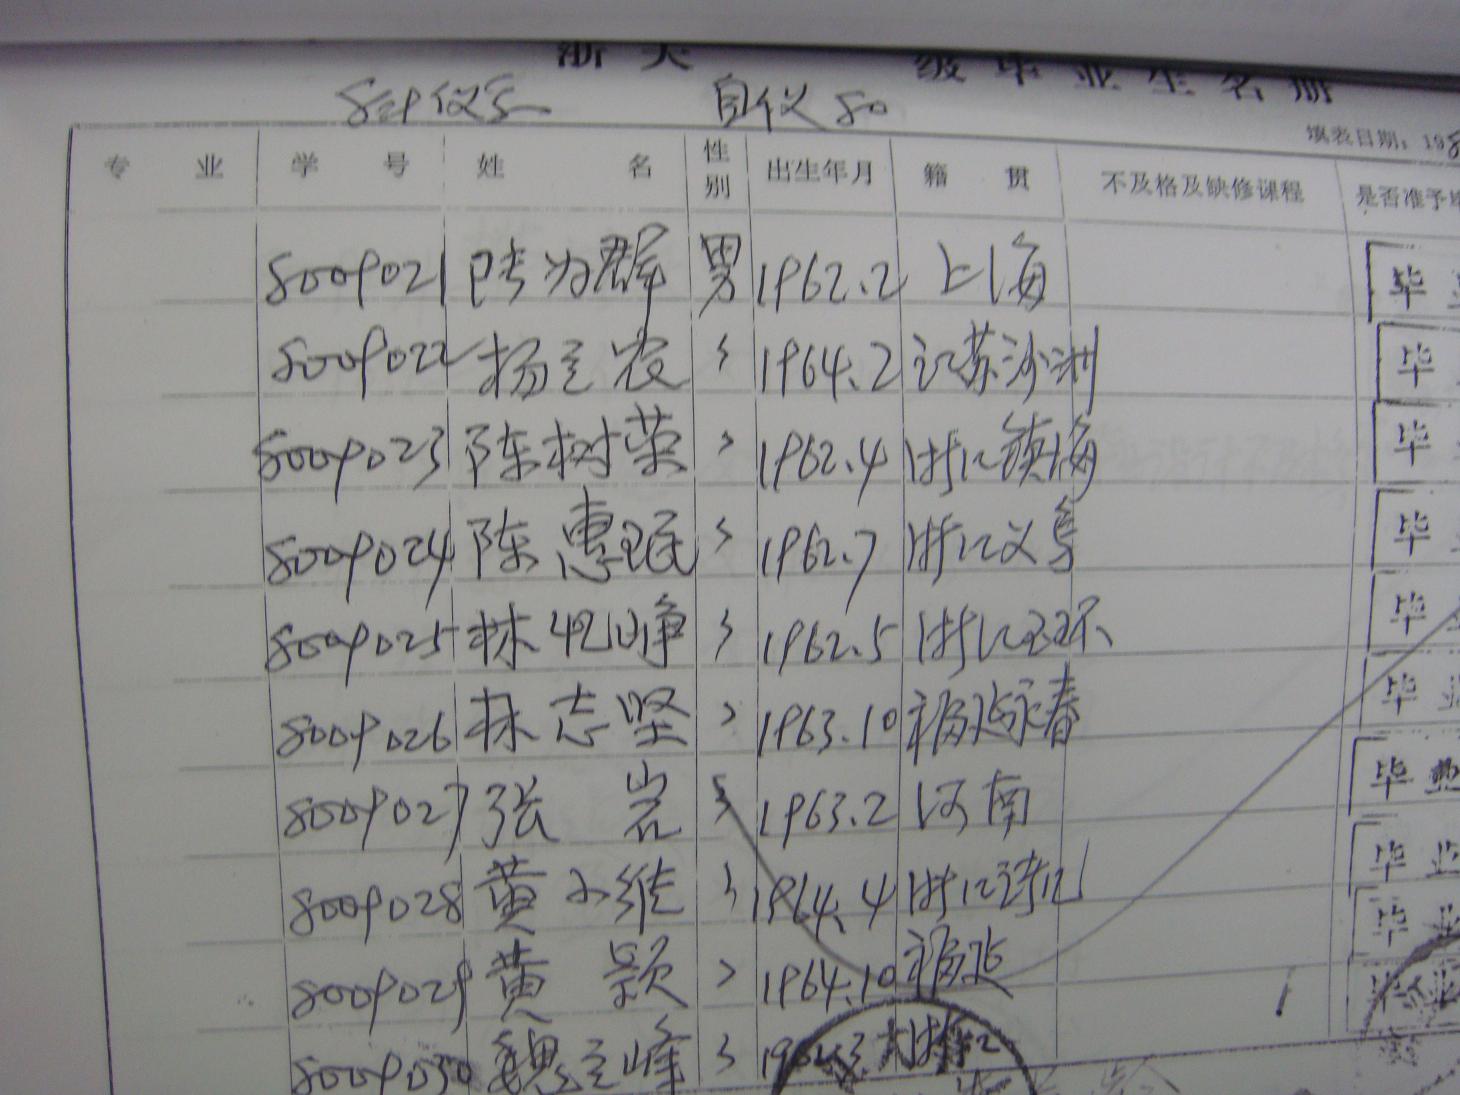 浙大 级毕业生名册
自仪80
填表日期：198
专业 学号 姓名 性别 出生年月 籍贯 不及格及缺修课程 是否准予毕
8009021 陆为群 男 1962.2 上海 毕业
8009022 杨立农 〃 1964.2 江苏沙洲 毕
8009023 陈树荣 〃 1962.4 浙江镇海 毕
8009024 陈惠珉 〃 1962.7 浙江义乌 毕
8009025 林 峥 〃 1962.5 浙江玉环 毕
8009026 林志坚 〃 1963.10 福建永春 毕业
8009027 张岩 〃 1963.2 河南 毕业
8009028 黄小维 〃 1964.4 浙江诸暨 毕业
8009029 黄颖 〃 1964.10 福建 毕业
8009030 魏立峰 〃 浙江 毕业